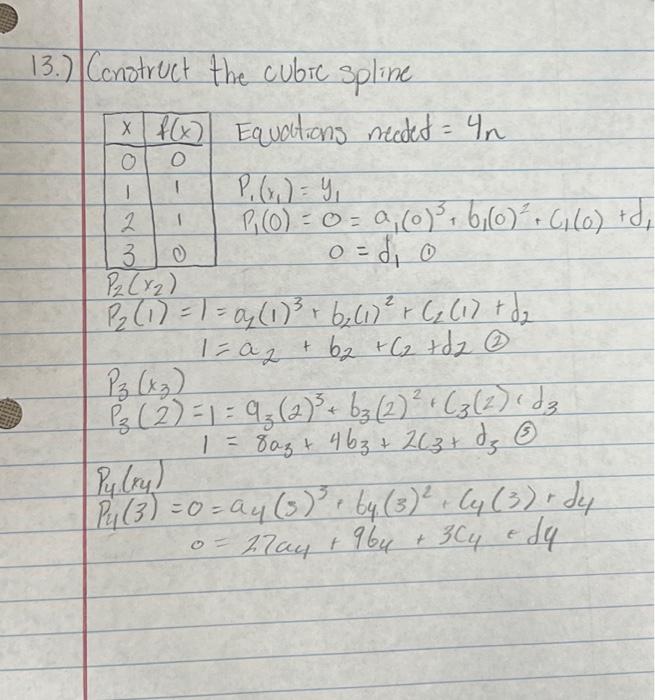 13.) Construct the cubic spline
x f(x) Equations needed = 4n
0 0
1 1 P₁(x₁) = y₁
2 1 P₁(0) = 0 = a₁(0)³ + b₁(0)² + C₁(0) + d₁
3 0 0 = d₁ ①
P₂(x₂)
P₂(1) = 1 = a₂(1)³ + b₂(1)² + C₂(1) + d₂
1 = a₂ + b₂ + C₂ + d₂ ②
P₃(x₃)
P₃(2) = 1 = a₃(2)³ + b₃(2)² + C₃(2) + d₃
1 = 8a₃ + 4b₃ + 2C₃ + d₃ ③
P₄(x₄)
P₄(3) = 0 = a₄(3)³ + b₄(3)² + C₄(3) + d₄
0 = 27a₄ + 9b₄ + 3C₄ + d₄